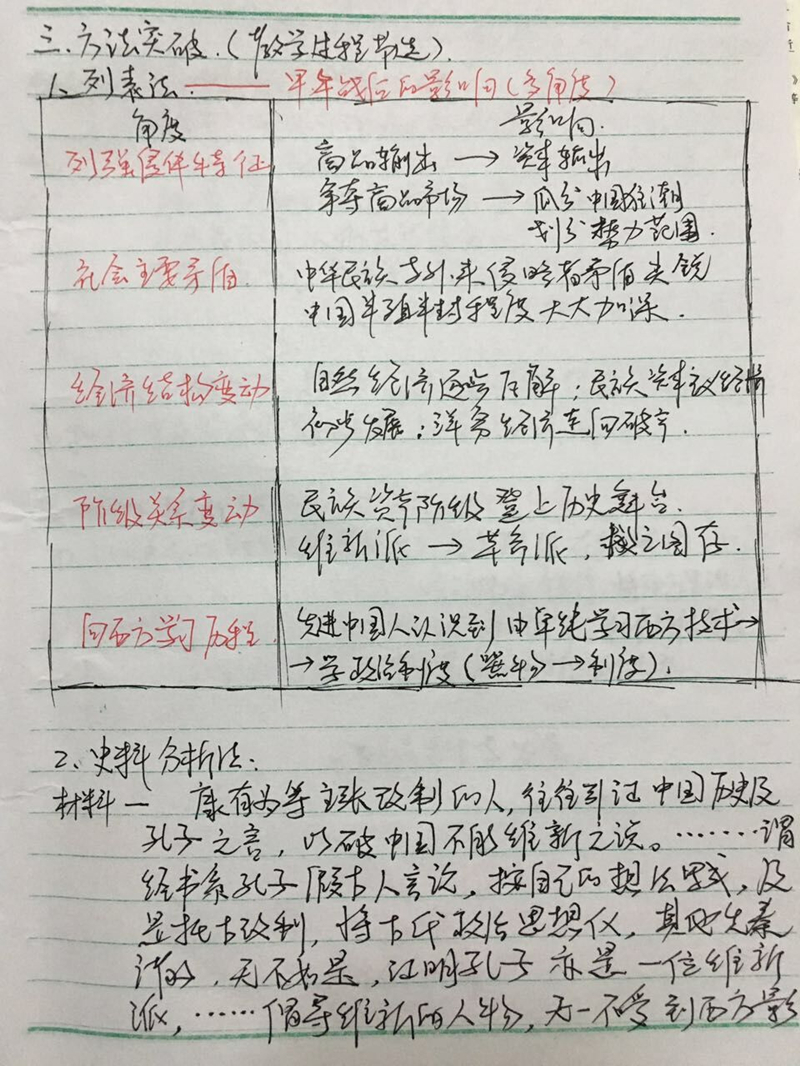 三.方法突破.(教学过程节选).
1、列表法:—— 甲午战后的影响(多角度)
角度 影响.
列强侵华特征 商品输出→资本输出
争夺商品市场→瓜分中国狂潮
划分势力范围.
社会主要矛盾. 中华民族与外来侵略者矛盾尖锐
中国半殖半封程度大大加深.
经济结构变动 自然经济逐步瓦解;民族资本主义经济
初步发展;洋务经济走向破产.
阶级关系变动 民族资产阶级登上历史舞台.
维新派→革命派,救亡图存.
向西方学习历程. 先进中国人认识到由单纯学习西方技术→
→学政治制度(器物→制度).
2、史料分析法:
材料一 康有为等主张改制的人,往往引证中国历史及
孔子之言,以破中国不能维新之说。……谓
经书系孔子假古人言论,按自己的想法写成,及
是托古改制,将古代政治思想化,其他先秦
诸子,无不如是,证明孔子亦是一位维新
派,……倡导维新的人物,无一不受到西方影